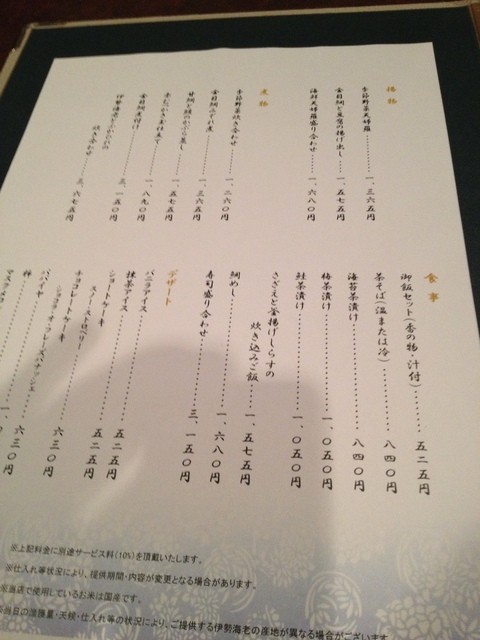 揚物
季節野菜天婦羅…………一、三六五円
金目鯛と豆腐の揚げ出し…一、五七五円
海鮮天婦羅盛り合わせ……一、六八〇円
煮物
季節野菜炊き合わせ………一、二六〇円
金目鯛みぞれ煮……………一、三六五円
甘鯛と鮭のかぶら蒸し……一、五七五円
金目鯛煮付け………………一、八九〇円
三、一五〇円
伊勢海老とふかひれの
炊き合わせ…三、六七五円
食事
御飯セット(香の物・汁付)………五二五円
茶そば(温または冷)………八四〇円
海苔茶漬け………八四〇円
梅茶漬け………一、〇五〇円
鮭茶漬け………一、〇五〇円
さざえと釜揚げしらすの
炊き込みご飯…一、五七五円
鯛めし………一、六八〇円
寿司盛り合わせ………三、一五〇円
デザート
バニラアイス
抹茶アイス………五二五円
ショートケーキ
スノーストロベリー………五二五円
チョコレートケーキ
ショコラ・オ・フレーズ………六三〇円
パパイヤ
柿………六三〇円
マスクメロン
※上記料金に別途サービス料(10%)を頂戴いたします。
※仕入れ等状況により、提供期間・内容が変更となる場合があります。
※当店で使用しているお米は国産です。
※当日の漁獲量・天候・仕入れ等の状況により、ご提供する伊勢海老の産地が異なる場合がございます